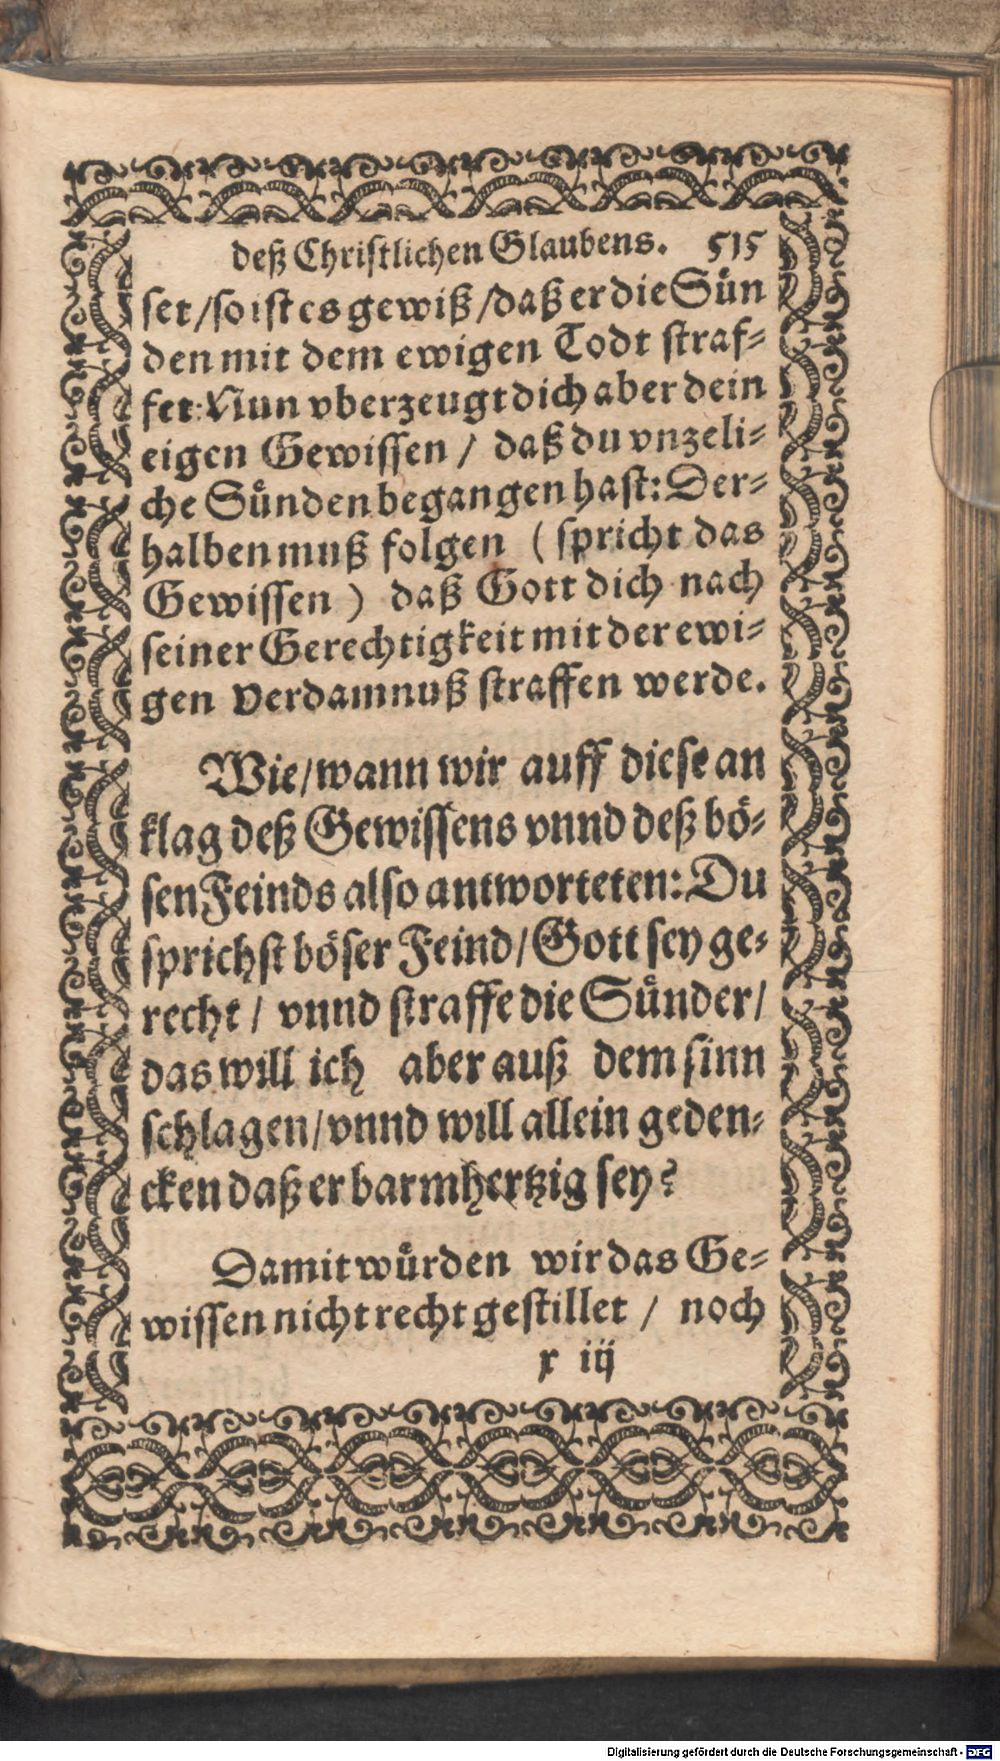 deß Christlichen Glaubens. 515
set/so ist es gewiß/daß er die Sün
den mit dem ewigen Todt straf-
fet: Nun vberzeugt dich aber dein
eigen Gewissen / daß du vnzeli-
che Sünden begangen hast: Der-
halben muß folgen ( spricht das
Gewissen ) daß Gott dich nach
seiner Gerechtigkeit mit der ewi-
gen Verdamnuß straffen werde.
Wie/wann wir auff diese an
klag deß Gewissens vnnd deß bö-
sen Feinds also antworteten: Du
sprichst böser Feind/Gott sey ge-
recht / vnnd straffe die Sünder/
das will ich aber auß dem sinn
schlagen/vnnd will allein geden-
cken daß er barmhertzig sey?
Damit würden wir das Ge-
wissen nicht recht gestillet / noch
x iij
Digitalisierung gefördert durch die Deutsche Forschungsgemeinschaft - DFG